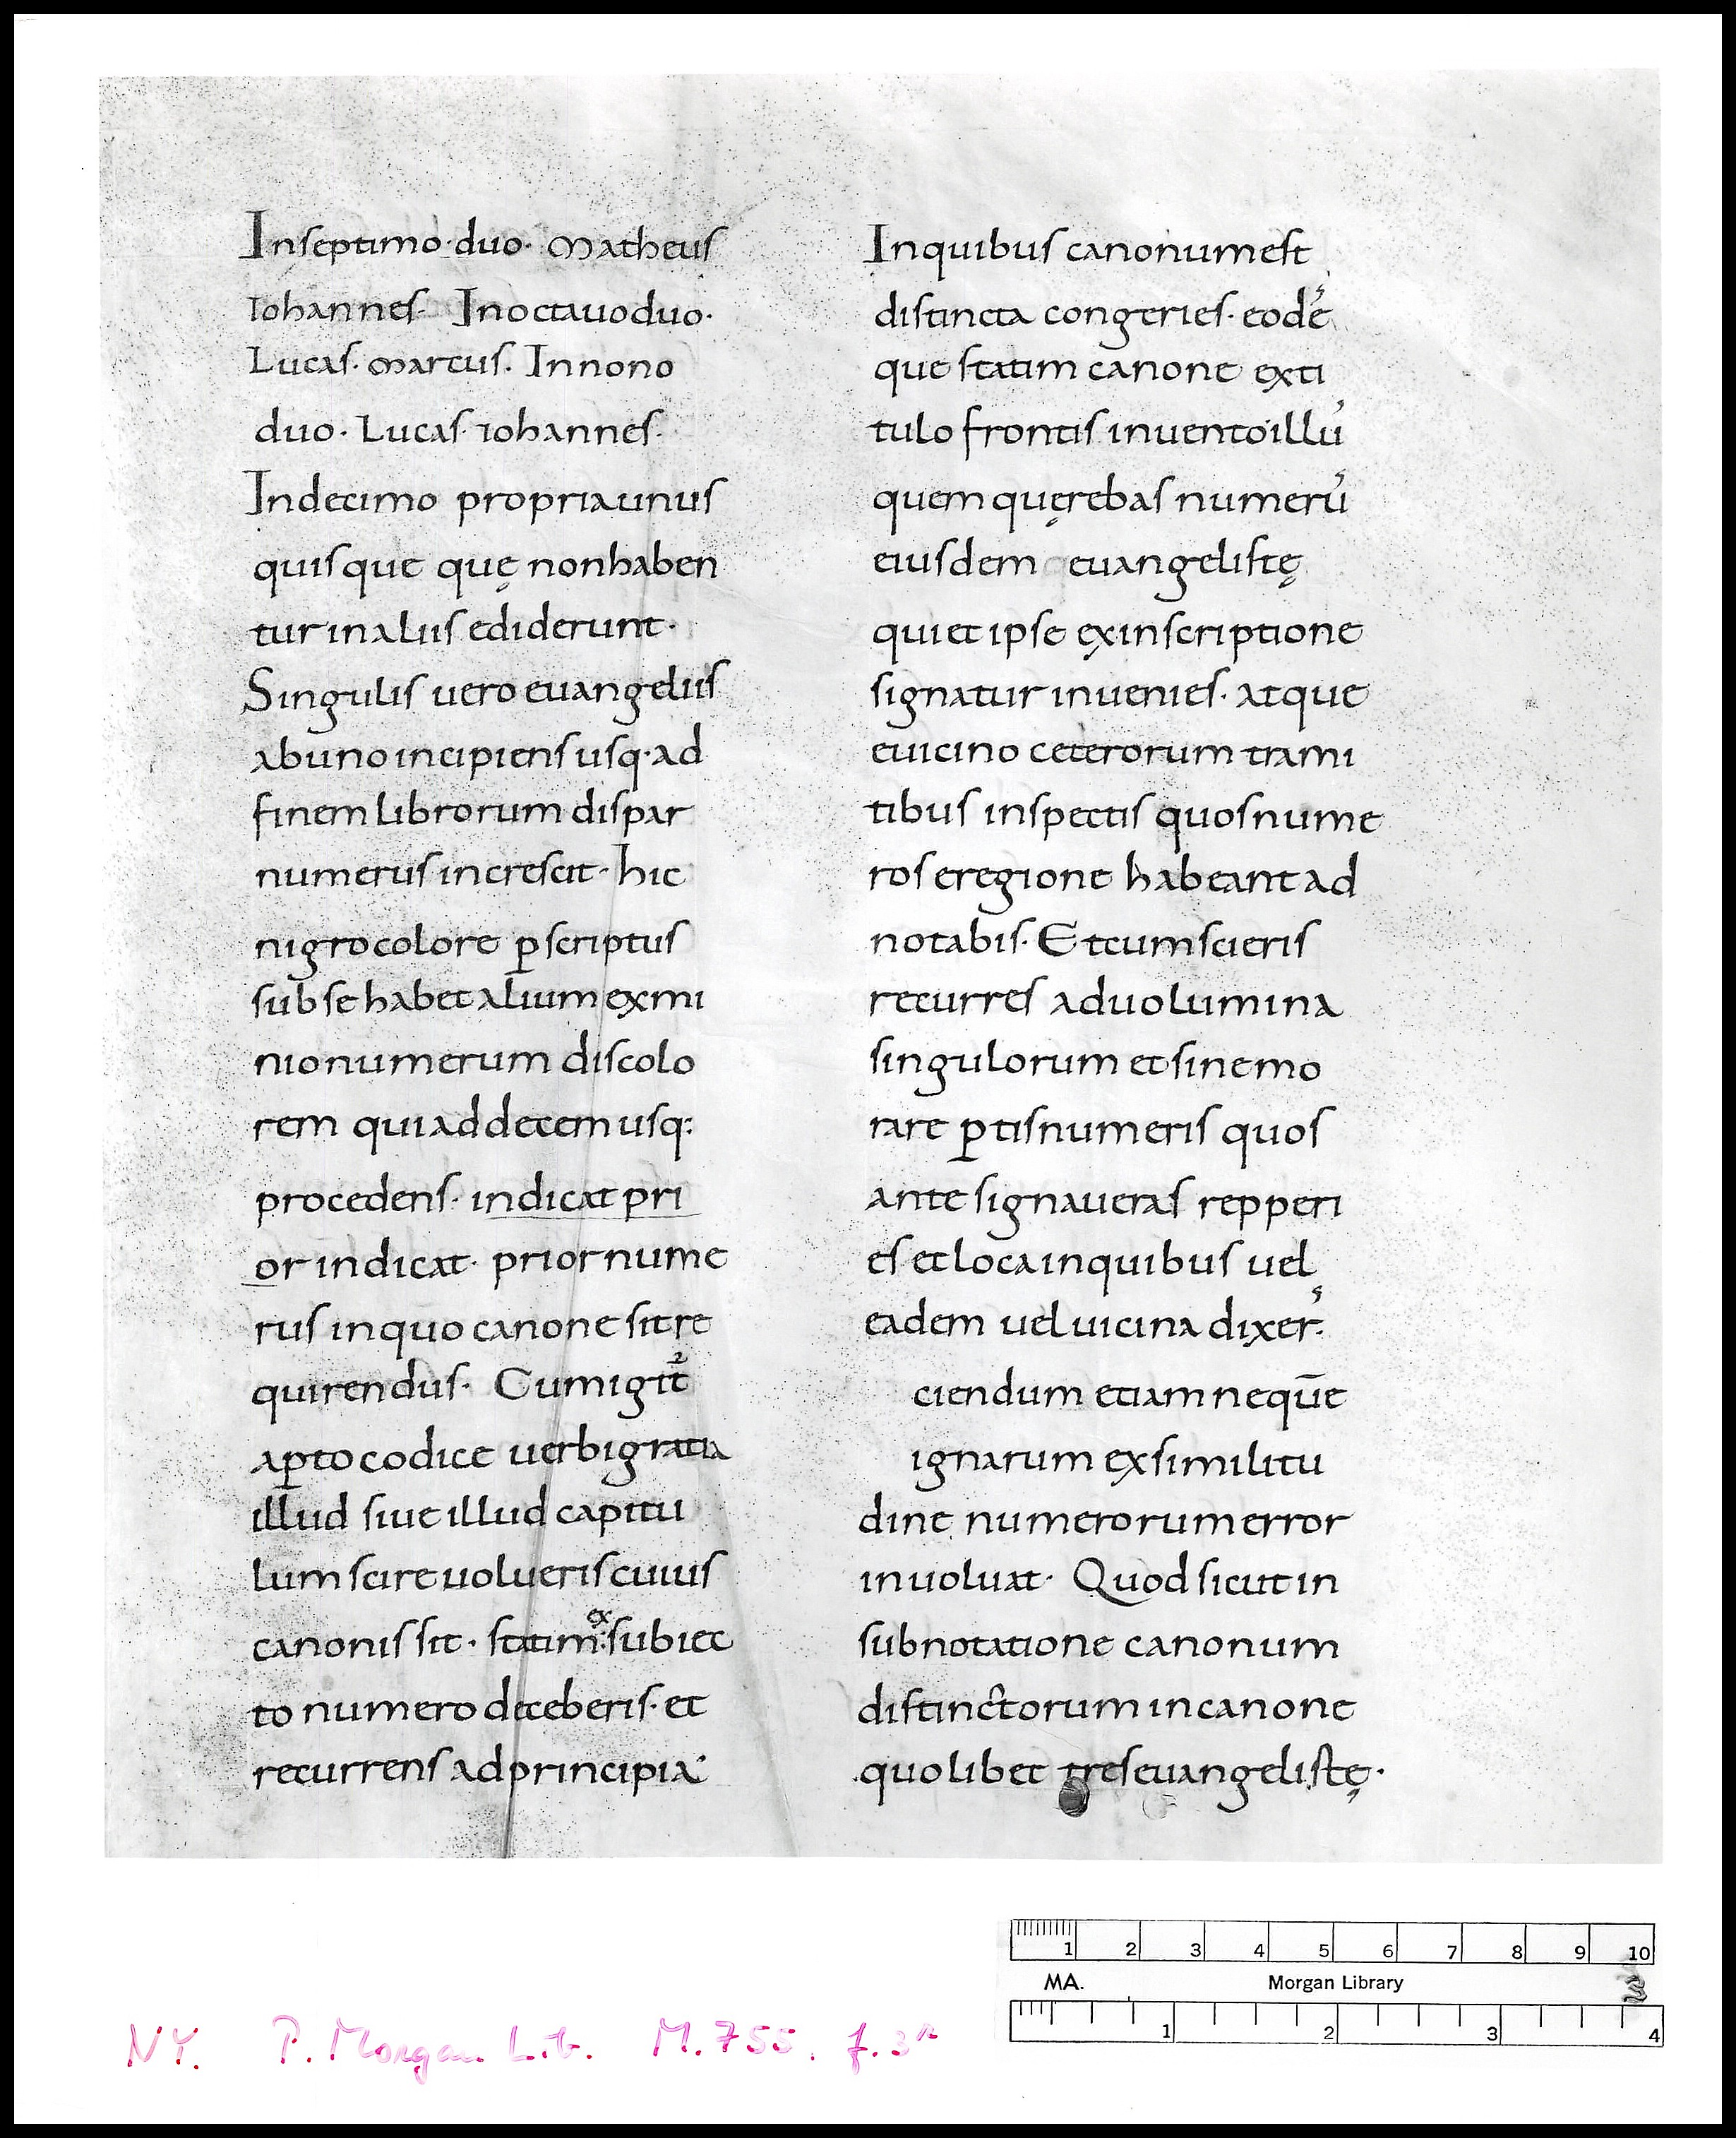 Inseptimo·duo· Matheus
Iohannes· Inoctauoduo·
Lucas· marcus· Innono
duo· Lucas· iohannes·
Indecimo propriaunus
quisque quę nonhaben
tur inaliis ediderunt·
Singulis uero euangeliis
abuno incipiens usq· ad
finem librorum dispar
numerus increscit· hic
nigrocolore ꝑscriptus
sub se habet alium exmi
nionumerum discolo
rem qui addecem usq:
procedens· indicat pri
or indicat· prior nume
rus inquo canone sit re
quirendus· Cumigit̄
aꝑto codice uerbigratia
illud siue illud capitu
lum scire uolueris cuius
canonis sit· statim ex subiec
to numero doceberis· et
recurrens adprincipia·
Inquibus canonumest
distincta congeries· eodē
que statim canone exti
tulo frontis inuento illū
quem quęrebas numerū
eiusdem euangelistę
qui et ipse exinscriptione
signatur inuenies· atque
euicino ceterorum trami
tibus inspectis quosnume
ros eregione habeant ad
notabis· Etcumscieris
recurres aduolumina
singulorum etsinemo
rare ꝑ tisnumeris quos
ante signaueras repperi
es et loca inquibus uel
eadem uel uicina dixer̄·
ciendum etiam nequē
ignarum exsimilitu
dine numerorum error
inuoluat· Quod sicut in
subnotatione canonum
distinctorum incanone
quolibet treseuangelistę·
1 2 3 4 5 6 7 8 9 10
MA. Morgan Library
1 2 3 4
NY. P. Morgan Lib. M.755. f.3r